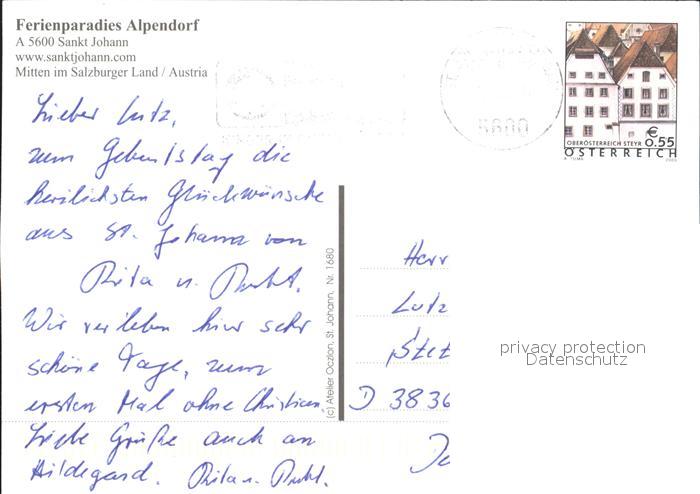 Ferienparadies Alpendorf
A 5600 Sankt Johann
www.sanktjohann.com
Mitten im Salzburger Land / Austria
5600
€
0.55
OBERÖSTERREICH STEYR
ÖSTERREICH
Lieber Lutz,
zum Geburtstag die
herzlichsten Glückwünsche
aus St. Johann von
Rita u.
Wir verleben hier sehr
schöne Tage, zum
ersten Mal ohne Christian.
Liebe Grüße auch an
Hildegard. Rita u.
(c) Atelier Oczlon, St. Johann, Nr. 1680
Herr
Lutz
D 3836
privacy protection
Datenschutz